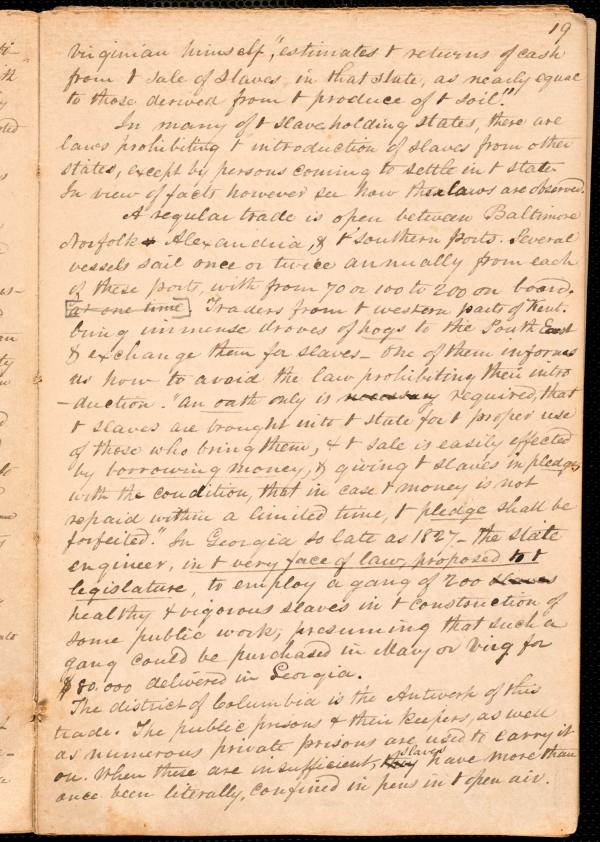 19
virginian himself, "estimates t returns of cash
from t sale of slaves in that state, as nearly equal
to those derived from t produce of t soil."!
In many of t slaveholding states, there are
laws prohibiting t introduction of slaves from other
states, except by persons coming to settle in t state.
In view of facts however see how these laws are observed.
A regular trade is open between Baltimore
Norfolk & Alexandria, & t southern ports. Several
vessels sail once or twice annually from each
of these ports, with from 70 or 100 to 200 on board.
at one time Traders from t western parts of Kent.
bring immense droves of hogs to the South East
& exchange them for slaves – One of them informs
us how to avoid the law prohibiting their intro
-duction. "An oath only is necessary required, that
t slaves are brought into t state for t proper use
of those who bring them, & t sale is easily effected
by borrowing money, & giving t slaves in pledge,
with the condition, that in case t money is not
repaid within a limited time, t pledge shall be
forfeited." In Georgia so late as 1827 – the state
engineer, in t very face of law, proposed to t
legislature, to employ a gang of 200 slaves
healthy & vigorous slaves in t construction of
some public work, presuming that such a
gang could be purchased in Mary or Virg for
$80.000 delivered in Georgia.
The district of Columbia is the Antwerp of this
trade. The public prisons & their keepers, as well
as numerous private prisons are used to carry it
on. When these are insufficient, they slaves have more than
once been literally, confined in pens in t open air.